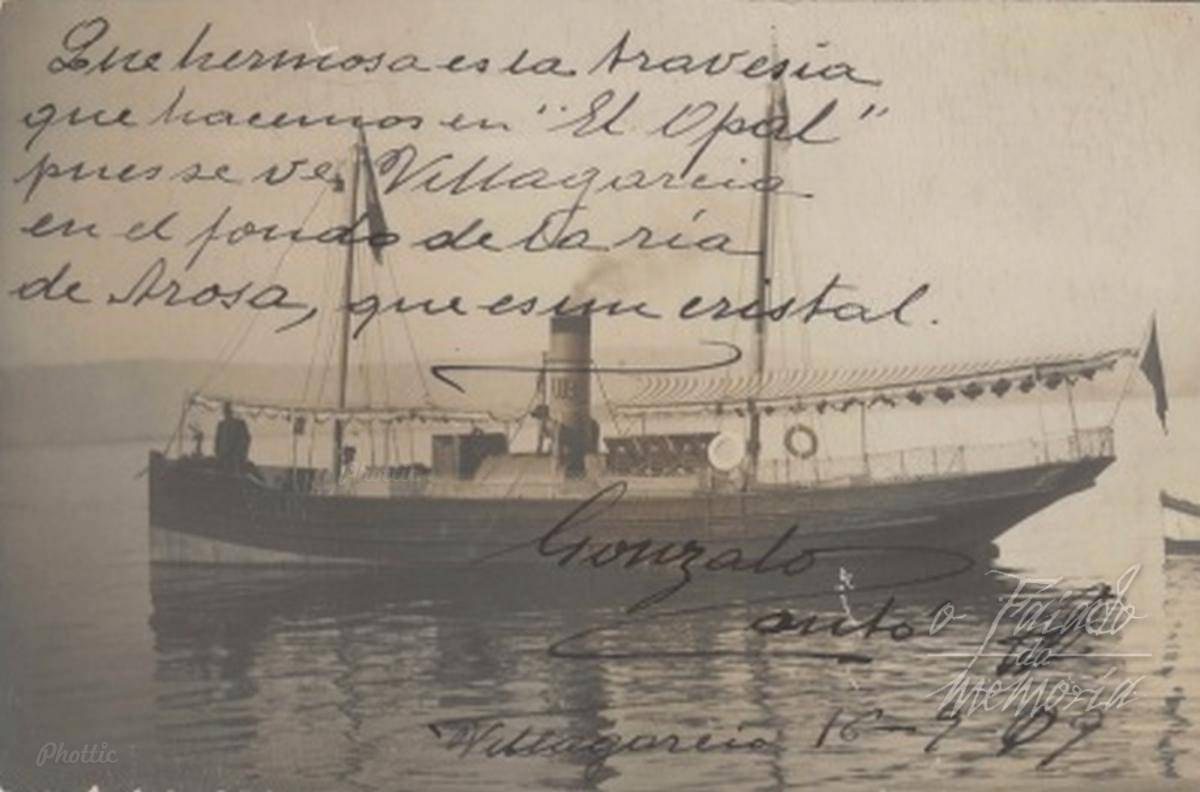 Que hermosa es la travesia
que hacemos en "El Opal"
pues se ve Villagarcia
en el fondo de la ría
de Arosa, que es un cristal.
Gonzalo
Villagarcia 16-9-09
o Faiado
da
memoria
Phottic
Phottic